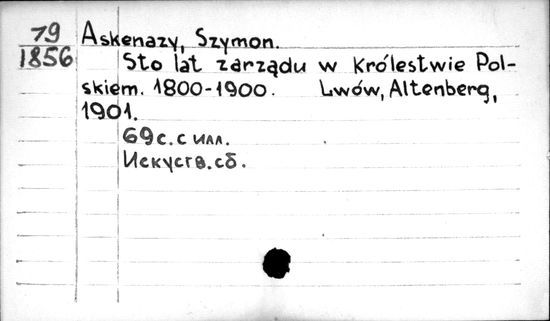 79
1856
Askenazy, Szymon.
Sto lat zarządu w Królestwie Pol-
skiem. 1800-1900. Lwów, Altenberg,
1901.
69 с. с илл.
Искуств. сб.